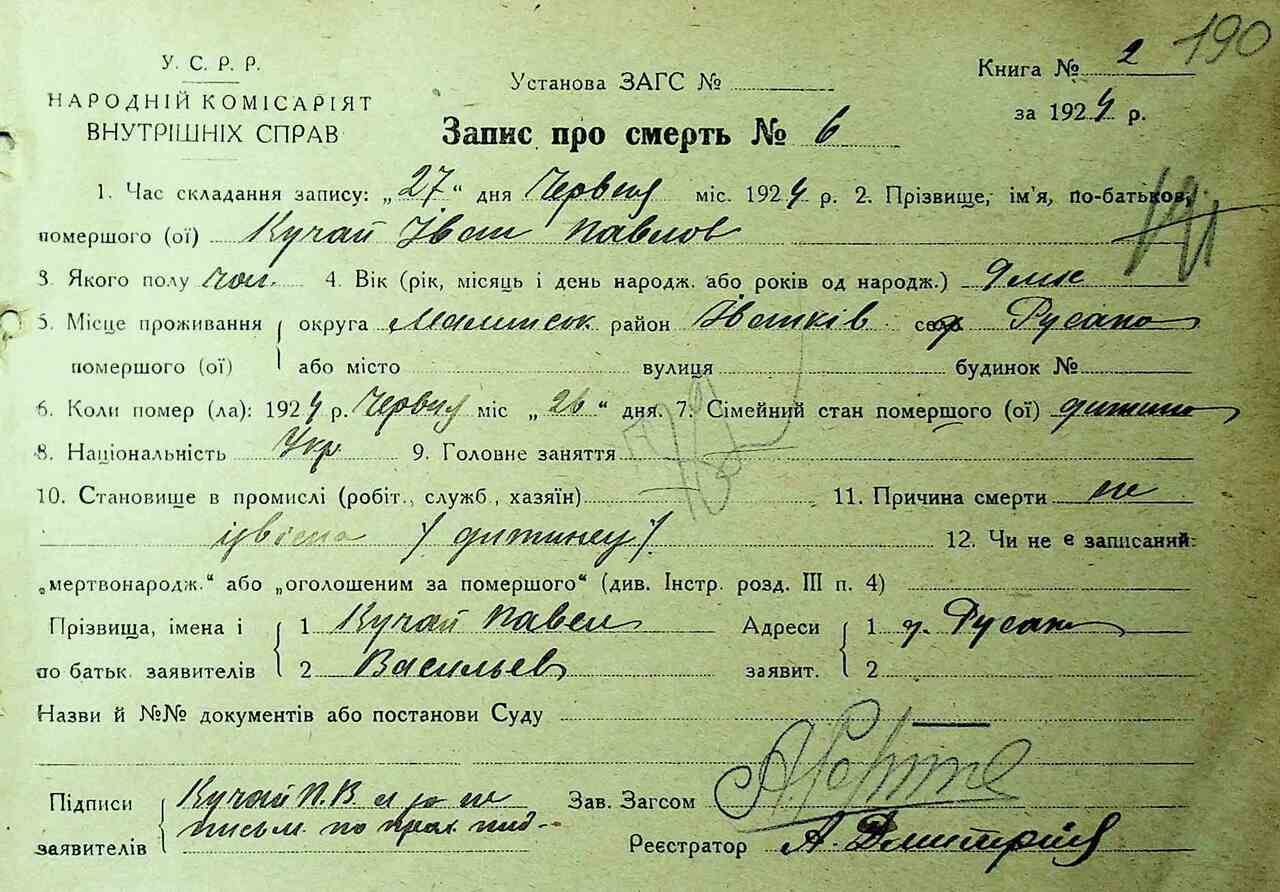 190
У. С. Р. Р.
НАРОДНІЙ КОМІСАРІЯТ
ВНУТРІШНІХ СПРАВ
Установа ЗАГС №
Книга № 2
за 1924 р.
Запис про смерть № 6
1. Час складання запису: „27“ дня Червня міс. 1924 р. 2. Прізвище, ім'я, по-батьков.
помершого (ої) Кучай Іван Павлов
3. Якого полу чол. 4. Вік (рік, місяць і день народж. або років од народж.)
5. Місце проживання округа район Іванків село Русаки
помершого (ої) або місто вулиця будинок №
6. Коли помер (ла): 1924 р. Червня міс „26“ дня. 7. Сімейний стан помершого (ої) дитина
8. Національність Укр. 9. Головне заняття
10. Становище в промислі (робіт., служб., хазяїн) 11. Причина смерти не
12. Чи не є записаний:
„мертвонародж.“ або „оголошеним за помершого“ (див. Інстр. розд. III п. 4)
Прізвища, імена і 1 Кучай Павел Адреси 1 д. Русаки
по батьк. заявителів 2 Васильев заявит. 2
Назви й №№ документів або постанови Суду
Підписи Кучай П. В. а за не Зав. Загсом
заявителів письм. по прох. под- Реєстратор А. Дмитрів